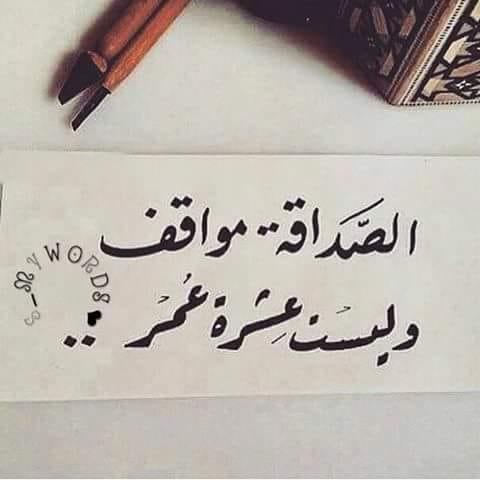 الصَّداقة.. مواقف
وليسْت عِشرة عُمرْ ..
S-MY WORDS